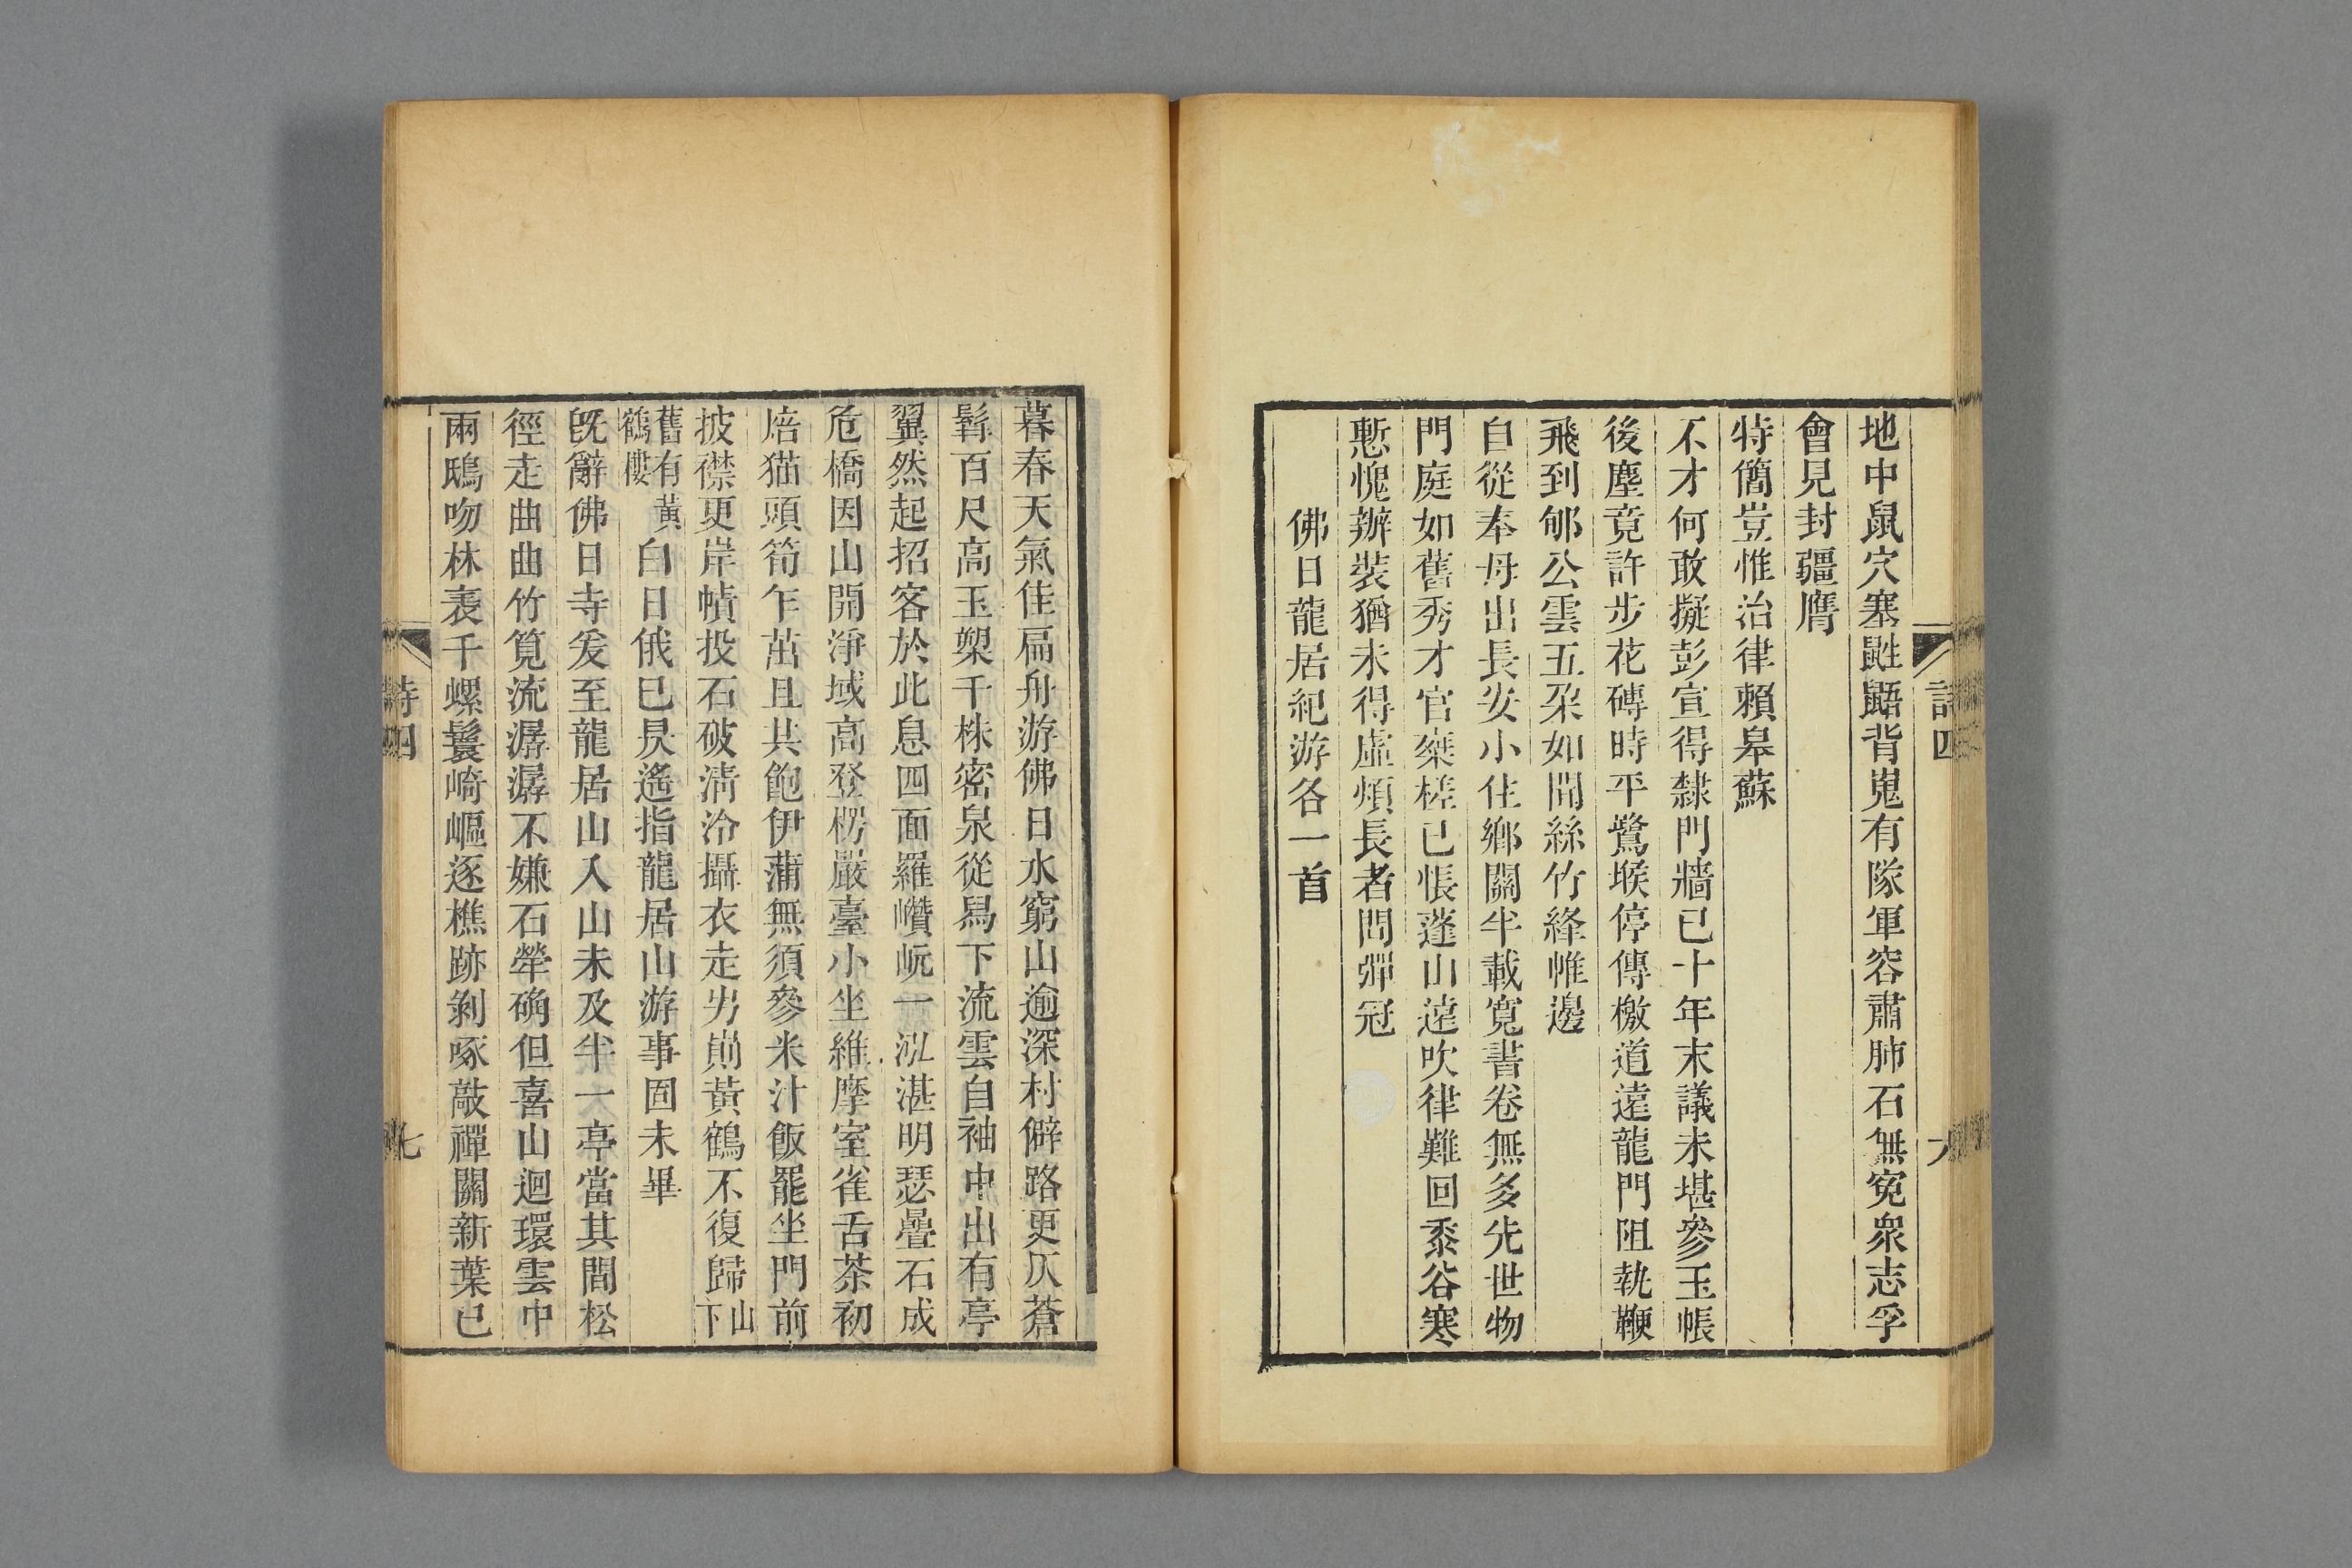 詩四
六
地中鼠穴塞鼪鼯背嵬有隊軍容肅肺石無冤衆志孚
會見封疆膺
特簡豈惟治律賴皋蘇
不才何敢擬彭宣得隸門牆已十年末議未堪參玉帳
後塵竟許步花磚時平鷺堠停傳檄道遠龍門阻執鞭
飛到郇公雲五朶如聞絲竹絳帷邊
自從奉母出長安小住鄉關半載寬書卷無多先世物
門庭如舊秀才官槳槎已悵蓬山遠吹律難回黍谷寒
慙愧辦裝猶未得虛煩長者問彈冠
佛日龍居紀游各一首
暮春天氣佳扁舟游佛日水窮山逾深村僻路更仄蒼
髯百尺高玉槊千株密泉從舄下流雲自袖中出有亭
翼然起招客於此息四面羅巑岏一泓湛明瑟疊石成
危橋因山開淨域高登楞嚴臺小坐維摩室雀舌茶初
焙猫頭筍乍茁且共飽伊蒲無須參米汁飯罷坐門前
披襟更岸幘投石破清泠攝衣走屴崱黃鶴不復歸山下
舊有黃鶴樓白日俄已昃遙指龍居山游事固未畢
旣辭佛日寺爰至龍居山入山未及半一亭當其間松
徑走曲曲竹筧流潺潺不嫌石犖确但喜山迴環雲中
兩鴟吻林表千螺鬟崎嶇逐樵跡剝啄敲禪關新葉已
詩四
七